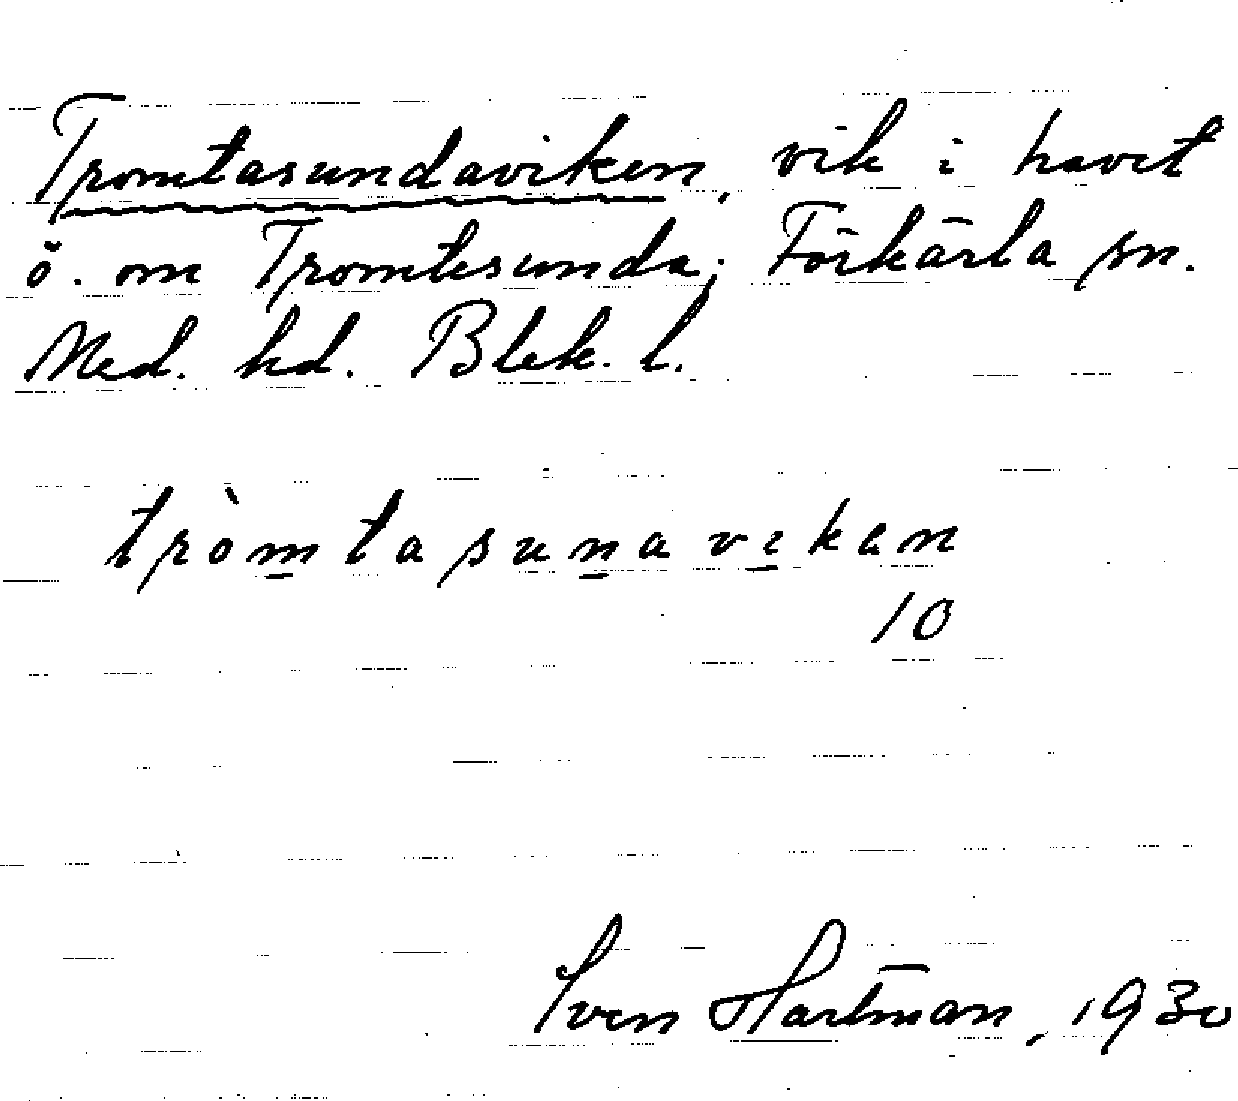 Tromtasundaviken, vik i havet
ö. om Tromtesunda; Förkärla sn.
Med. hd. Blek. l.
tròmtasunavikan
10
Sven Hartman, 1930